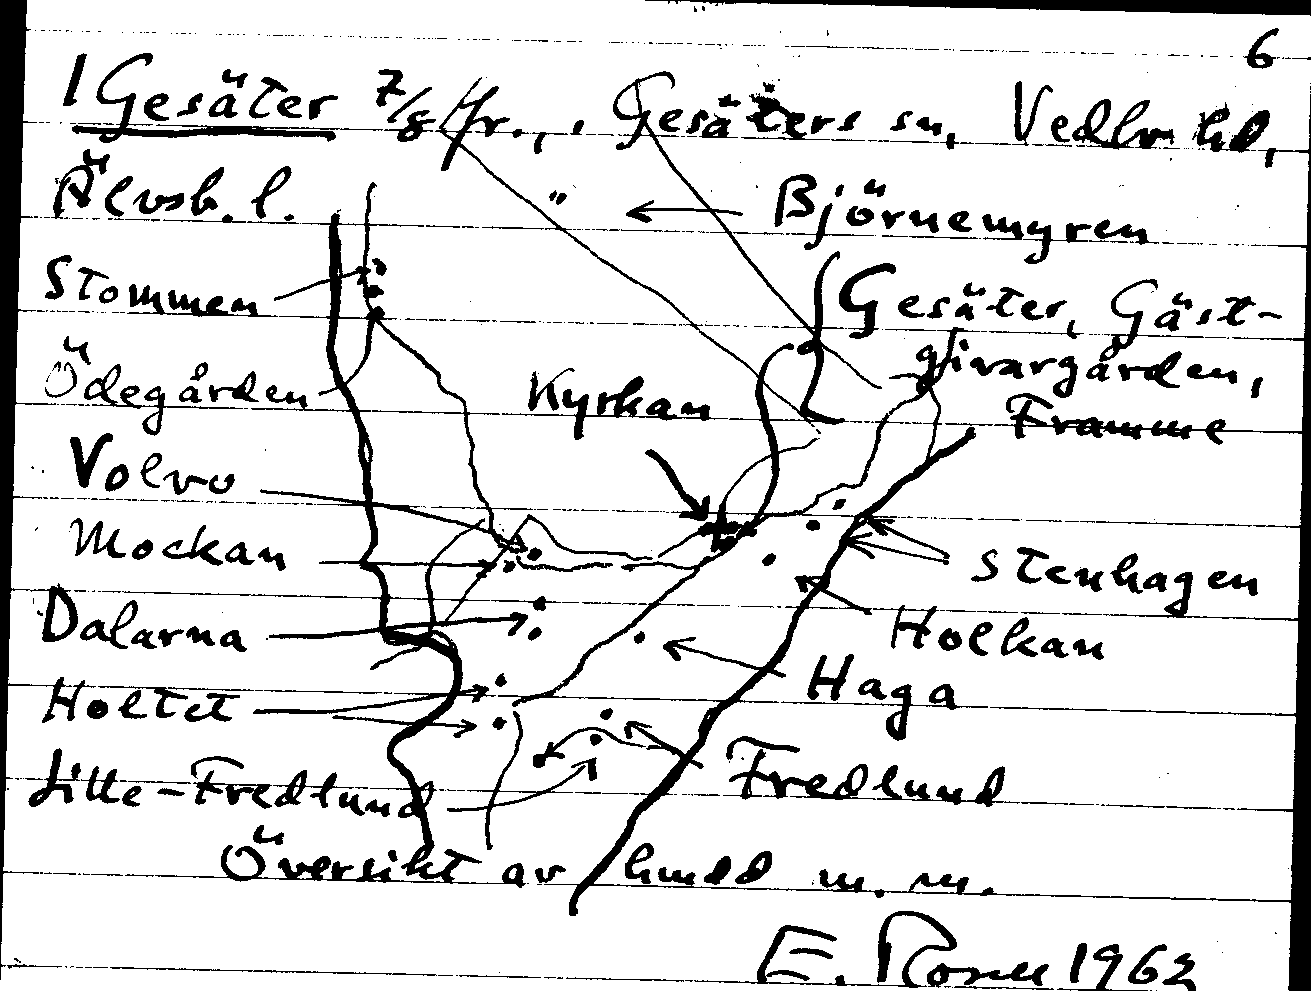 6
1 Gesäter 7/8 fr., Gesäters sn, Vedbo hd,
Älvsb. l.
" ← Björnemyren
Stommen
Gesäter, Gäst-
givargården,
Framme
Ödegården
Kyrkan
Volvo
Mockan
Stenhagen
Dalarna
Holkan
Haga
Holtet
Lille-Fredlund
Fredlund
Översikt av hmdd m. m.
E. Rosell 1962